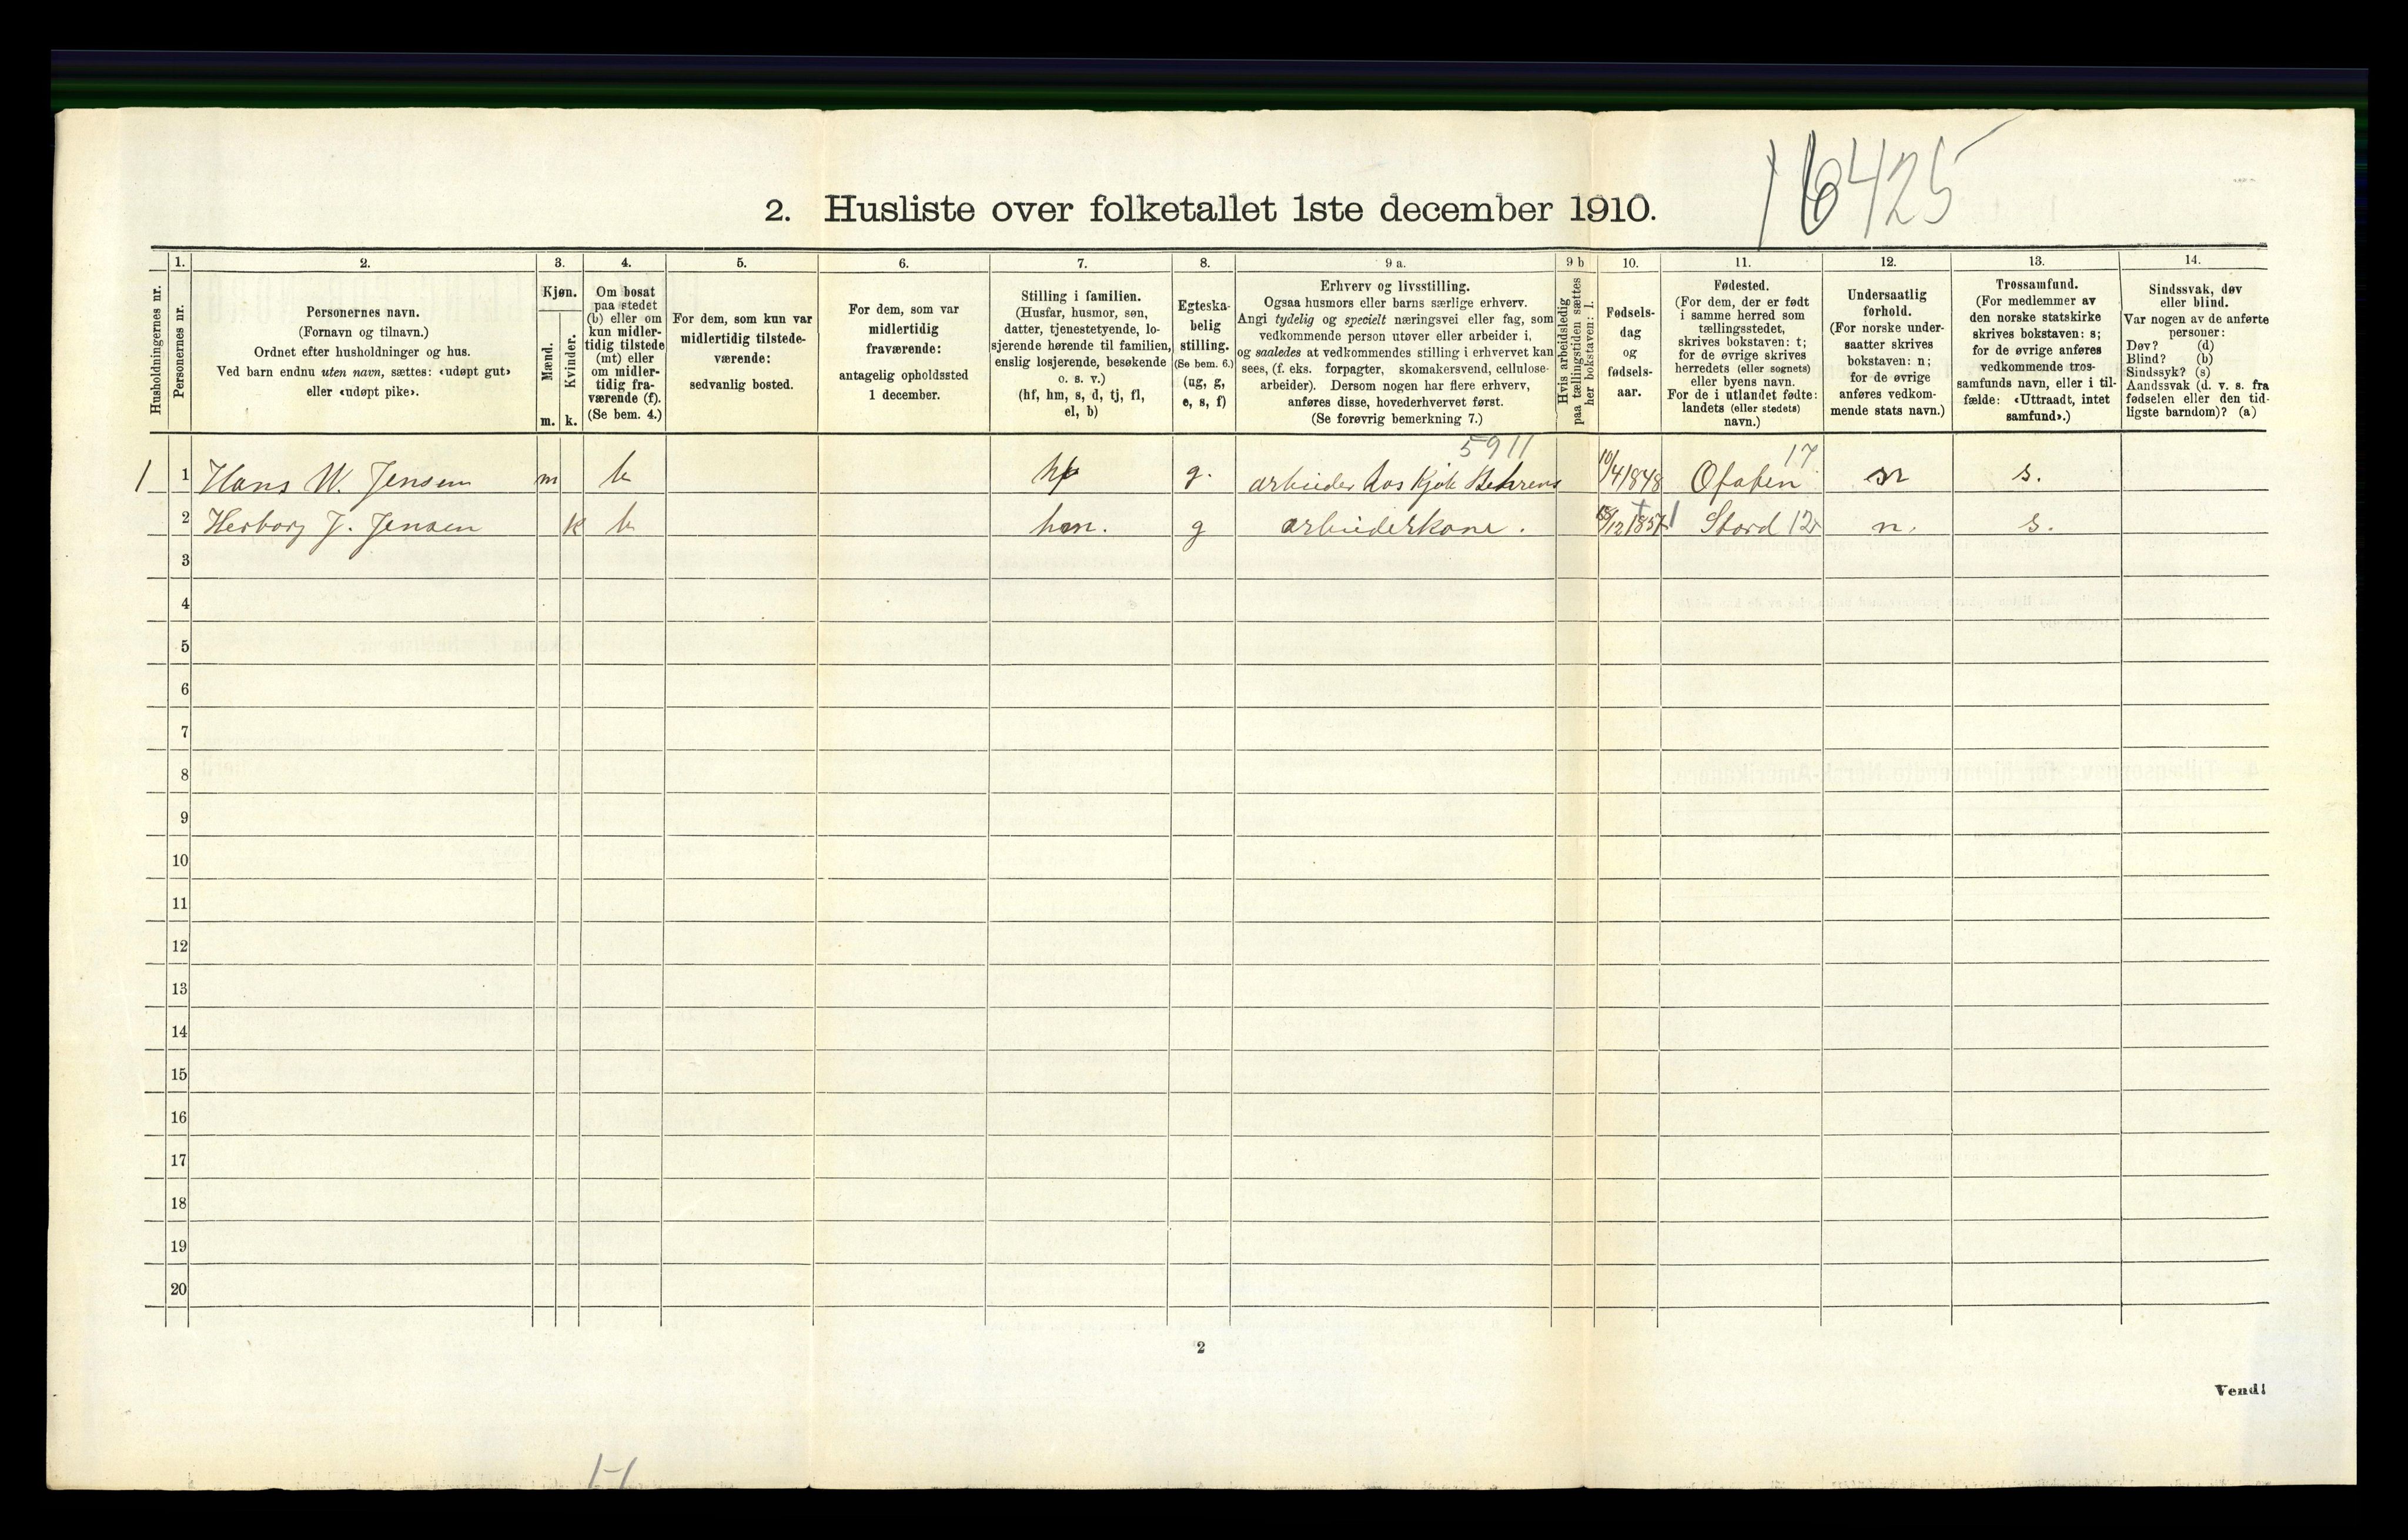 16425
2. Husliste over folketallet 1ste december 1910.
Husholdningernes nr.
1.
Personernes nr.
2.
Personernes navn.
(Fornavn og tilnavn.)
Ordnet efter husholdninger og hus.
Ved barn endnu uten navn, sættes: «udøpt gut»
eller «udøpt pike».
3.
Kjøn.
Mænd.
Kvinder.
m. k.
4.
Om bosat
paa stedet
(b) eller om
kun midler-
tidig tilstede
(mt) eller
om midler-
tidig fra-
værende (f).
(Se bem. 4.)
5.
For dem, som kun var
midlertidig tilstede-
værende:
sedvanlig bosted.
6.
For dem, som var
midlertidig
fraværende:
antagelig opholdssted
1 december.
7.
Stilling i familien.
(Husfar, husmor, søn,
datter, tjenestetyende, lo-
sjerende hørende til familien,
enslig losjerende, besøkende
o. s. v.)
(hf, hm, s, d, tj, fl,
el, b)
8.
Egteska-
belig
stilling.
(Se bem. 6.)
(ug, g,
e, s, f)
9 a.
Erhverv og livsstilling.
Ogsaa husmors eller barns særlige erhverv.
Angi tydelig og specielt næringsvei eller fag, som
vedkommende person utøver eller arbeider i,
og saaledes at vedkommendes stilling i erhvervet kan
sees, (f. eks. forpagter, skomakersvend, cellulose-
arbeider). Dersom nogen har flere erhverv,
anføres disse, hovederhvervet først.
(Se forøvrig bemerkning 7.)
9 b
Hvis arbeidsledig
paa tællingstiden sættes
her bokstaven: l.
10.
Fødsels-
dag
og
fødsels-
aar.
11.
Fødested.
(For dem, der er født
i samme herred som
tællingsstedet,
skrives bokstaven: t;
for de øvrige skrives
herredets (eller sognets)
eller byens navn.
For de i utlandet fødte:
landets (eller stedets)
navn.)
12.
Undersaatlig
forhold.
(For norske under-
saatter skrives
bokstaven: n;
for de øvrige
anføres vedkom-
mende stats navn.)
13.
Trossamfund.
(For medlemmer av
den norske statskirke
skrives bokstaven: s;
for de øvrige anføres
vedkommende tros-
samfunds navn, eller i til-
fælde: «Uttraadt, intet
samfund».)
14.
Sindssvak, døv
eller blind.
Var nogen av de anførte
personer:
Døv? (d)
Blind? (b)
Sindssyk? (s)
Aandssvak (d. v. s. fra
fødselen eller den tid-
ligste barndom)? (a)
5911
17
1 1 Hans W. Jensen m b hf g. arbeider hos Kjøb Behrens 10/4 1848 Ofoten n s.
2 Herborg J. Jensen k b hm. g arbeiderkone. Stord 12 n. s.
3
4
5
6
7
8
9
10
11
12
13
14
15
16
17
18
19
20
2
Vend!
1-1